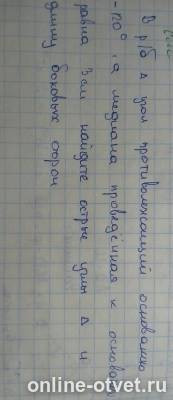 В р/б △ угол противолежащий основанию
- 120°, а медиана проведённая к основан
равна 3см найдите острые углы △ и
длину боковых сторон
online-otvet.ru